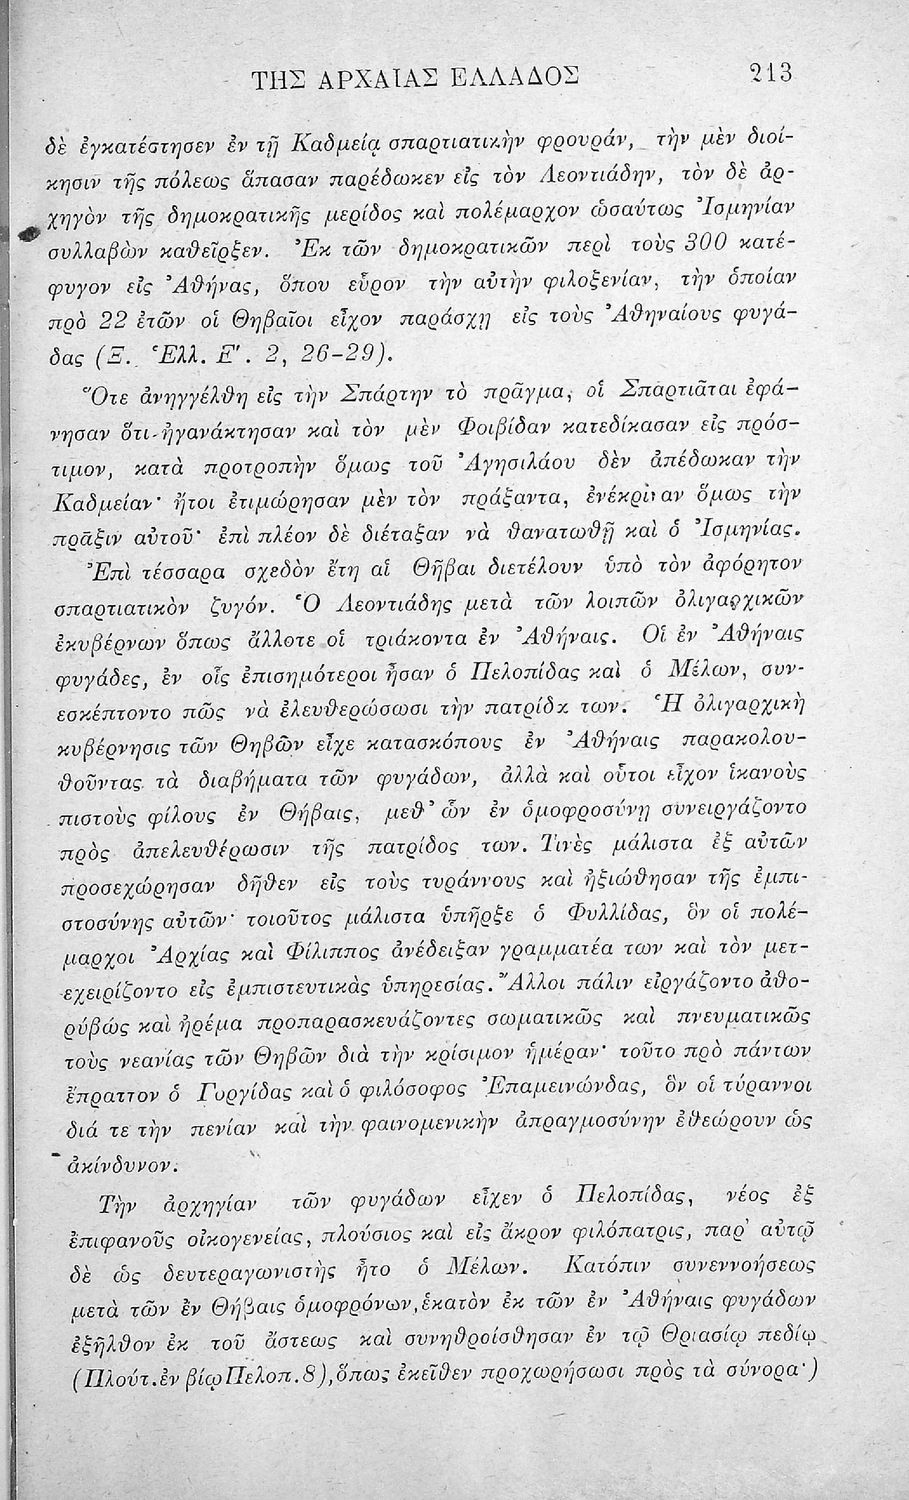 ΤΗΣ ΑΡΧΑΙΑΣ ΕΛΛΑΔΟΣ 213
δὲ ἐγκατέστησεν ἐν τῇ Καδμείᾳ σπαρτιατικὴν φρουράν, τὴν μὲν διοί-
κησιν τῆς πόλεως ἅπασαν παρέδωκεν εἰς τὸν Λεοντιάδην, τὸν δὲ ἀρ-
χηγὸν τῆς δημοκρατικῆς μερίδος καὶ πολέμαρχον ὡσαύτως Ἰσμηνίαν
συλλαβὼν καθεῖρξεν. Ἐκ τῶν δημοκρατικῶν περὶ τοὺς 300 κατέ-
φυγον εἰς Ἀθήνας, ὅπου εὗρον τὴν αὐτὴν φιλοξενίαν, τὴν ὁποίαν
πρὸ 22 ἐτῶν οἱ Θηβαῖοι εἶχον παράσχῃ εἰς τοὺς Ἀθηναίους φυγά-
δας (Ξ. Ἑλλ. Ε'. 2, 26-29).
Ὅτε ἀνηγγέλθη εἰς τὴν Σπάρτην τὸ πρᾶγμα, οἱ Σπαρτιᾶται ἐφά-
νησαν ὅτι ἠγανάκτησαν καὶ τὸν μὲν Φοιβίδαν κατεδίκασαν εἰς πρόσ-
τιμον, κατὰ προτροπὴν ὅμως τοῦ Ἀγησιλάου δὲν ἀπέδωκαν τὴν
Καδμείαν· ἤτοι ἐτιμώρησαν μὲν τὸν πράξαντα, ἐνέκριναν ὅμως τὴν
πρᾶξιν αὐτοῦ· ἐπὶ πλέον δὲ διέταξαν νὰ θανατωθῇ καὶ ὁ Ἰσμηνίας.
Ἐπὶ τέσσαρα σχεδὸν ἔτη αἱ Θῆβαι διετέλουν ὑπὸ τὸν ἀφόρητον
σπαρτιατικὸν ζυγόν. Ὁ Λεοντιάδης μετὰ τῶν λοιπῶν ὀλιγαρχικῶν
ἐκυβέρνων ὅπως ἄλλοτε οἱ τριάκοντα ἐν Ἀθήναις. Οἱ ἐν Ἀθήναις
φυγάδες, ἐν οἷς ἐπισημότεροι ἦσαν ὁ Πελοπίδας καὶ ὁ Μέλων, συν-
εσκέπτοντο πῶς νὰ ἐλευθερώσωσι τὴν πατρίδα των. Ἡ ὀλιγαρχικὴ
κυβέρνησις τῶν Θηβῶν εἶχε κατασκόπους ἐν Ἀθήναις παρακολου-
θοῦντας τὰ διαβήματα τῶν φυγάδων, ἀλλὰ καὶ οὗτοι εἶχον ἱκανοὺς
πιστοὺς φίλους ἐν Θήβαις, μεθ' ὧν ἐν ὁμοφροσύνῃ συνειργάζοντο
πρὸς ἀπελευθέρωσιν τῆς πατρίδος των. Τινὲς μάλιστα ἐξ αὐτῶν
προσεχώρησαν δῆθεν εἰς τοὺς τυράννους καὶ ἠξιώθησαν τῆς ἐμπι-
στοσύνης αὐτῶν· τοιοῦτος μάλιστα ὑπῆρξε ὁ Φυλλίδας, ὃν οἱ πολέ-
μαρχοι Ἀρχίας καὶ Φίλιππος ἀνέδειξαν γραμματέα των καὶ τὸν μετ-
εχειρίζοντο εἰς ἐμπιστευτικὰς ὑπηρεσίας. Ἄλλοι πάλιν εἰργάζοντο ἀθο-
ρύβως καὶ ἠρέμα προπαρασκευάζοντες σωματικῶς καὶ πνευματικῶς
τοὺς νεανίας τῶν Θηβῶν διὰ τὴν κρίσιμον ἡμέραν· τοῦτο πρὸ πάντων
ἔπραττον ὁ Γοργίδας καὶ ὁ φιλόσοφος Ἐπαμεινώνδας, ὃν οἱ τύραννοι
διά τε τὴν πενίαν καὶ τὴν φαινομενικὴν ἀπραγμοσύνην ἐθεώρουν ὡς
ἀκίνδυνον.
Τὴν ἀρχηγίαν τῶν φυγάδων εἶχεν ὁ Πελοπίδας, νέος ἐξ
ἐπιφανοῦς οἰκογενείας, πλούσιος καὶ εἰς ἄκρον φιλόπατρις, παρ' αὐτῷ
δὲ ὡς δευτεραγωνιστὴς ἦτο ὁ Μέλων. Κατόπιν συνεννοήσεως
μετὰ τῶν ἐν Θήβαις ὁμοφρόνων, ἑκατὸν ἐκ τῶν ἐν Ἀθήναις φυγάδων
ἐξῆλθον ἐκ τοῦ ἄστεως καὶ συνηθροίσθησαν ἐν τῷ Θριασίῳ πεδίῳ
(Πλούτ. ἐν βίῳ Πελοπ. 8), ὅπως ἐκεῖθεν προχωρήσωσι πρὸς τὰ σύνορα·)